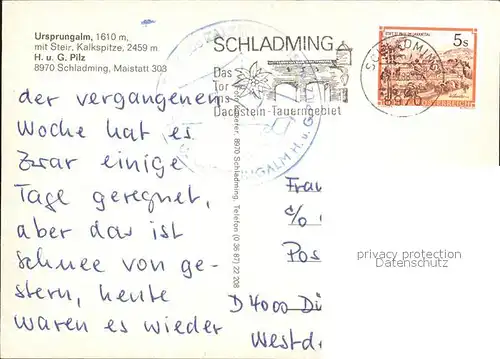 Ursprungalm, 1610 m,
mit Steir. Kalkspitze, 2459 m
H. u. G. Pilz
8970 Schladming, Maistatt 303
SCHLADMING
Das
Tor
ins
Dachstein-Tauerngebiet
5s
SCHLADMING
8970
REPUBLIK ÖSTERREICH
URSPRUNGALM H. u. G. Pilz
8970 Schladming, Telefon (0 36 87) 22 208
der vergangenen
Woche hat es
zwar einige
Tage geregnet,
aber das ist
Schnee von ge-
stern, heute
waren es wieder
Frau
c/o
Pos
D 4000 Dü
Westd
privacy protection
Datenschutz